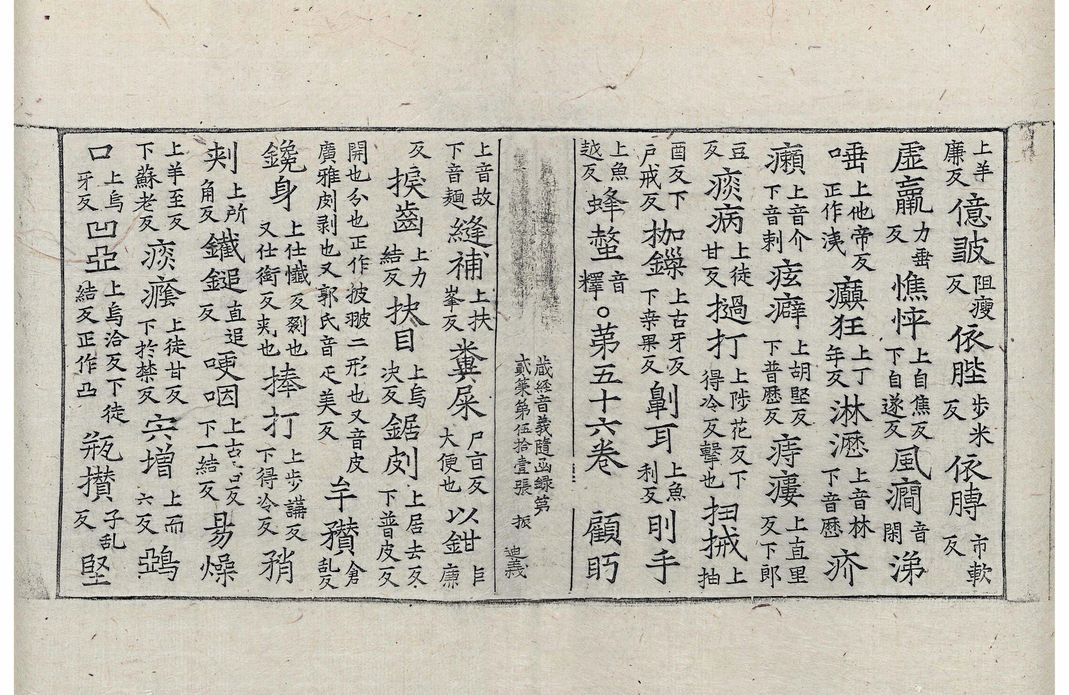 上羊廉反億詖阻瘦反依胜步米反依膞市軟反
虛羸力垂反憔悴上自焦反下自遂反風癎音閑涕
唾上他帝反正作洟癲狂上丁年反淋瀝上音林下音歷疥
癩上音介下音剌痃癖上胡堅反下普歷反痔瘻上直里反下郎
豆反痰病上徒甘反撾打上陟花反下得冷反擊也扭械上抽
酉反下戶戒反枷鏁上古牙反下桒果反劓耳上魚利反刖手
上魚越反蜂螫音釋。第五十六卷 顧眄
蔵經音義隨函録第貳筞第伍拾壹張 振 迪義
上音故下音麺縫補上扶峯反糞屎尸旨反大便也以鉗巨廉
反捩齒上力結反抉目上烏決反鋸㓟上居去反下普皮反
開也分也正作披翍二形也又音皮廣雅㓟剥也又郭氏音疋美反牟穳倉乱反
鑱身上仕懴反剡也又仕銜反夹也捧打上步講反下得冷反矟
刾上所角反鐵鎚直追反哽咽上古反下一結反昜燥
上羊至反下蘇老反痰癊上徒甘反下於禁反宍增上而六反鵶
口上烏牙反凹凸上烏洽反下徒結反正作凸瓶攢子乱反堅